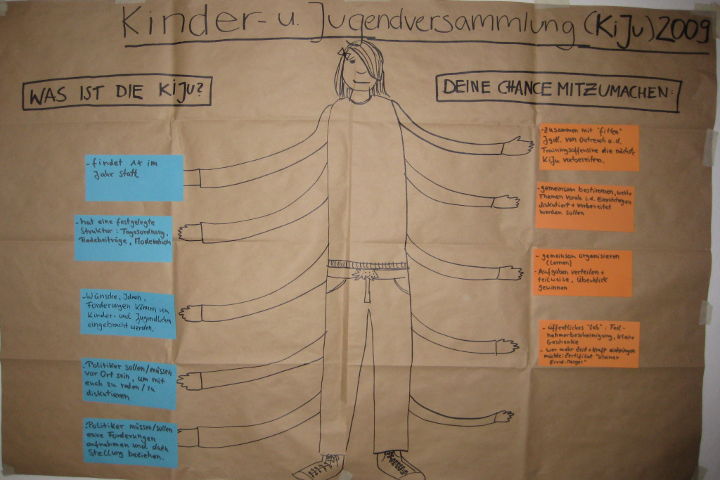 Kinder- u. Jugendversammlung (KiJu) 2009
WAS IST DIE KiJu?
- findet 1x im
Jahr statt
- hat eine festgelegte
Struktur: Tagesordnung,
Redebeiträge, Moderation
- Wünsche, Ideen,
Forderungen können von
Kinder- und Jugendlichen
eingebracht werden.
- Politiker sollen/müssen
vor Ort sein, um mit
euch zu reden/zu
diskutieren
- Politiker müssen/sollen
eure Forderungen
aufnehmen und dazu
Stellung beziehen.
DEINE CHANCE MITZUMACHEN:
- Zusammen mit "fitten"
Jgdl. von Outreach a.d.
Trainingsoffensive die nächste
KiJu vorbereiten.
- gemeinsam bestimmen, welche
Themen vorab i.d. Einrichtungen
diskutiert + vorbereitet
werden sollen
- gemeinsam organisieren
(Lernen)
- Aufgaben verteilen +
teilweise, Überblick
gewinnen
- öffentliches "Lob": Teil-
nahmebescheinigung, kleine
Geschenke
- wer mehr Zeit + Kraft einbringen
möchte: Zertifikat